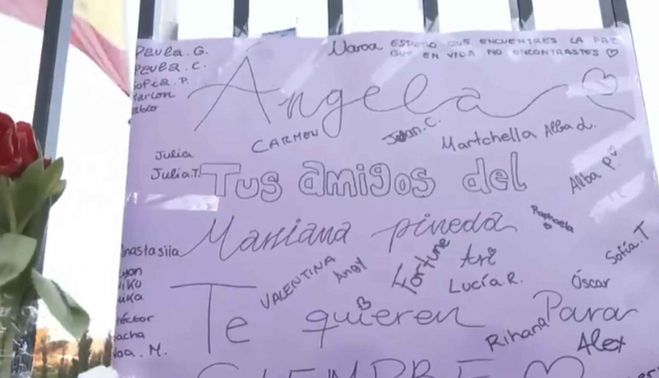 Paula. G.
Paula. C.
Sofía. P.
Marcon
Pablo
Naroa ESPERO QUE ENCUENTRES LA PAZ
QUE EN VIDA NO ENCONTRASTES ♡
Ángela ♡
CARMEN
Juan. C.
Martchella
Alba d.
Julia
Julia T.
Tus amigos del
Alba P.
Mariana pineda
Raphaela
Anastasiia
Sofía. T
VALENTINA
Angy
Fortune
Ari
Lucía R.
Óscar
Te quieren Para
Rihana
Alex
SIEMPRE ♡